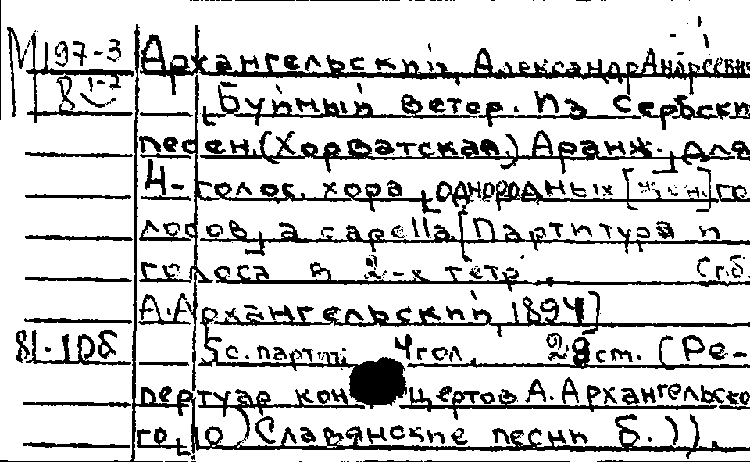 М 197-3 Архангельский, Александр Андреевич
8 1-2 Буйный ветер. Из Сербских
песен. (Хорватская.) Аранж. для
4-голос. хора однородных [жен.] го
лосов, a capella [Партитура и
голоса в 2-х тетр. Спб.
А. Архангельский, 1894]
81-106 5с. парти 4 гол. ст. (Ре-
пертуар концертов А. Архангельско
го) (Славянские песни б.)).